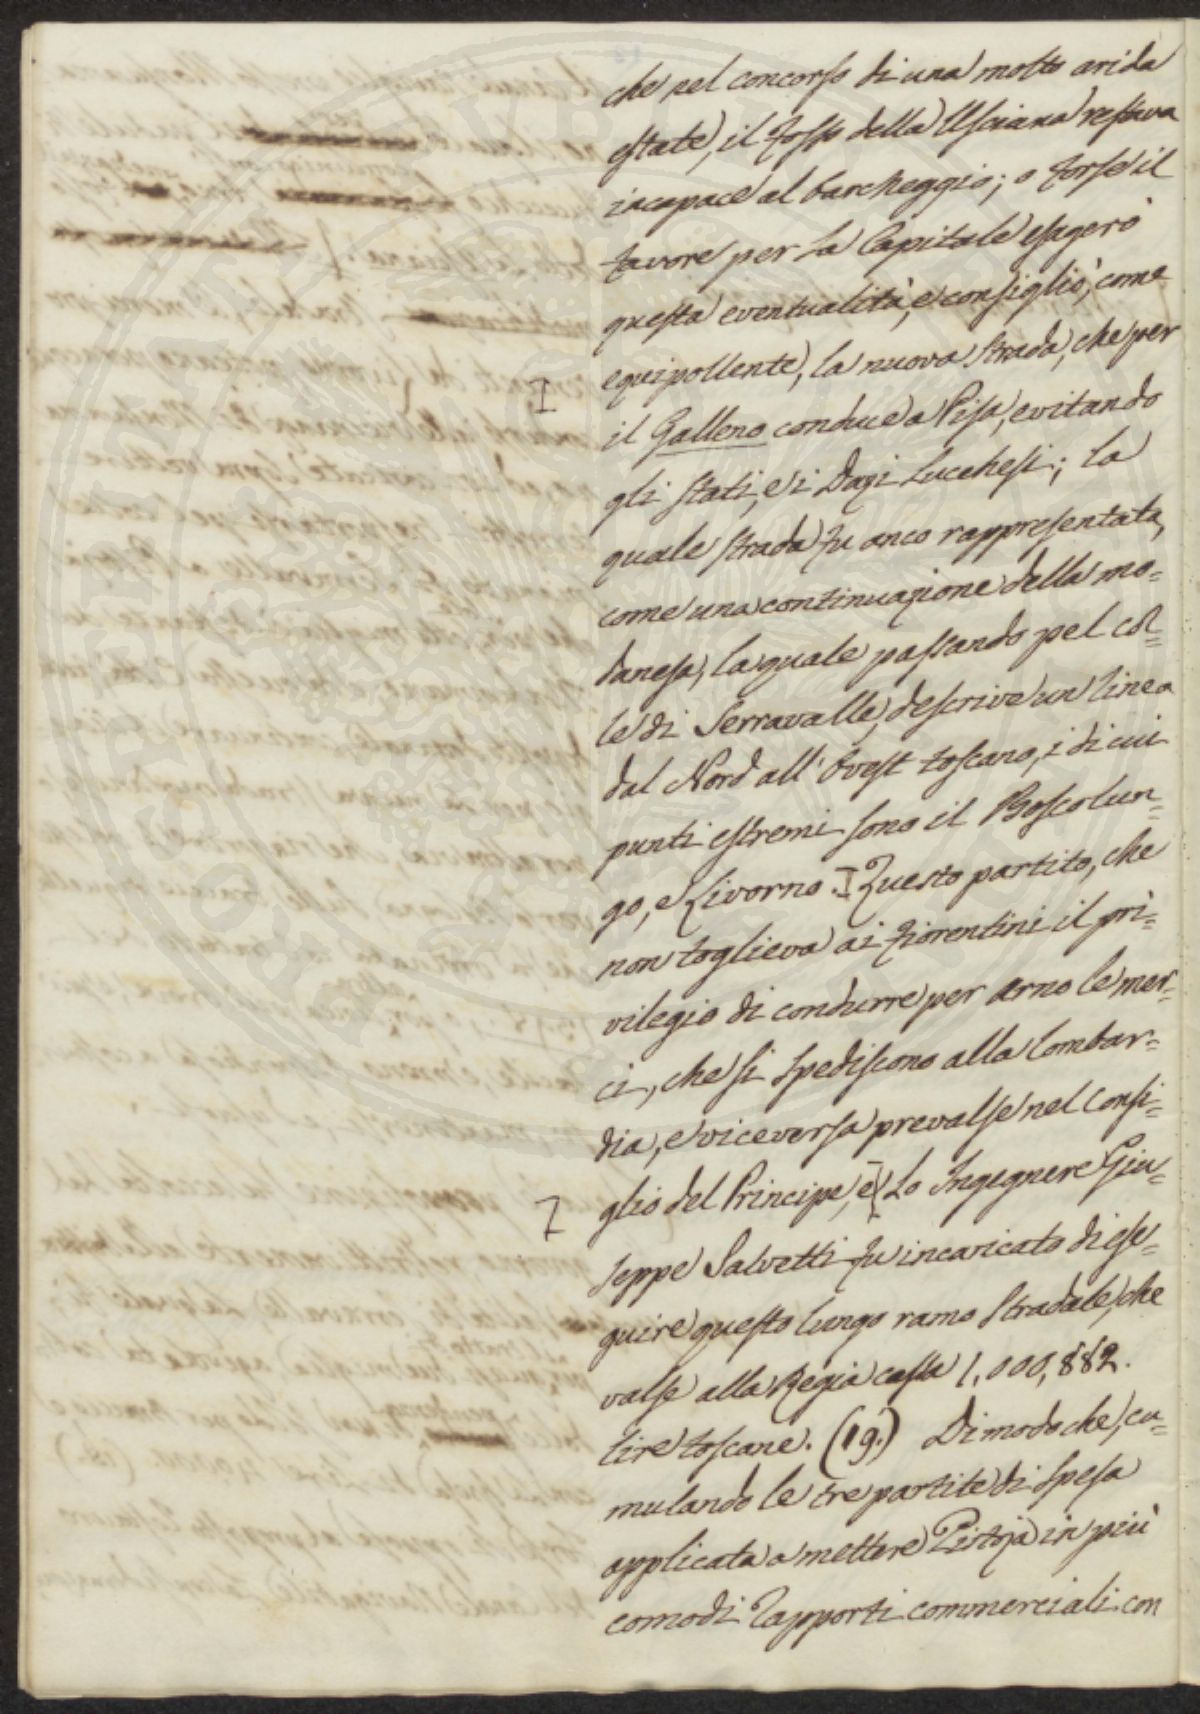 che nel concorso di una molto arida
estate, il Fosso della Usciana restava
incapace al barcheggio; o forse il
favore per la Capitale esagerò
questa eventualità, e consigliò, come
equipollente, la nuova strada, che per
il Galleno conduce a Pisa, evitando
gli stati, e i Dazi Lucchesi; la
quale strada fu anco rappresentata,
come una continuazione della mo=
danesa, la quale passando pel col=
le di Serravalle, descrive un linea
dal Nord all'Ovest toscano, i di cui
punti estremi sono il Boscolun=
go, e Livorno. I Questo partito, che
non toglieva ai Fiorentini il pri=
vilegio di condurre per Arno le mer=
ci, che si spediscono alla Lombar=
dia, e viceversa prevalse nel Consi=
glio del Principe, e Lo Ingegnere Giu=
seppe Salvetti fu incaricato di ese=
guire questo lungo ramo stradale, che
valse alla Regia cassa 1,000,882.
lire toscane. (19.) Di modo che, cu=
mulando le tre partite di spesa
applicata a mettere Pistoja in più
comodi rapporti commerciali con